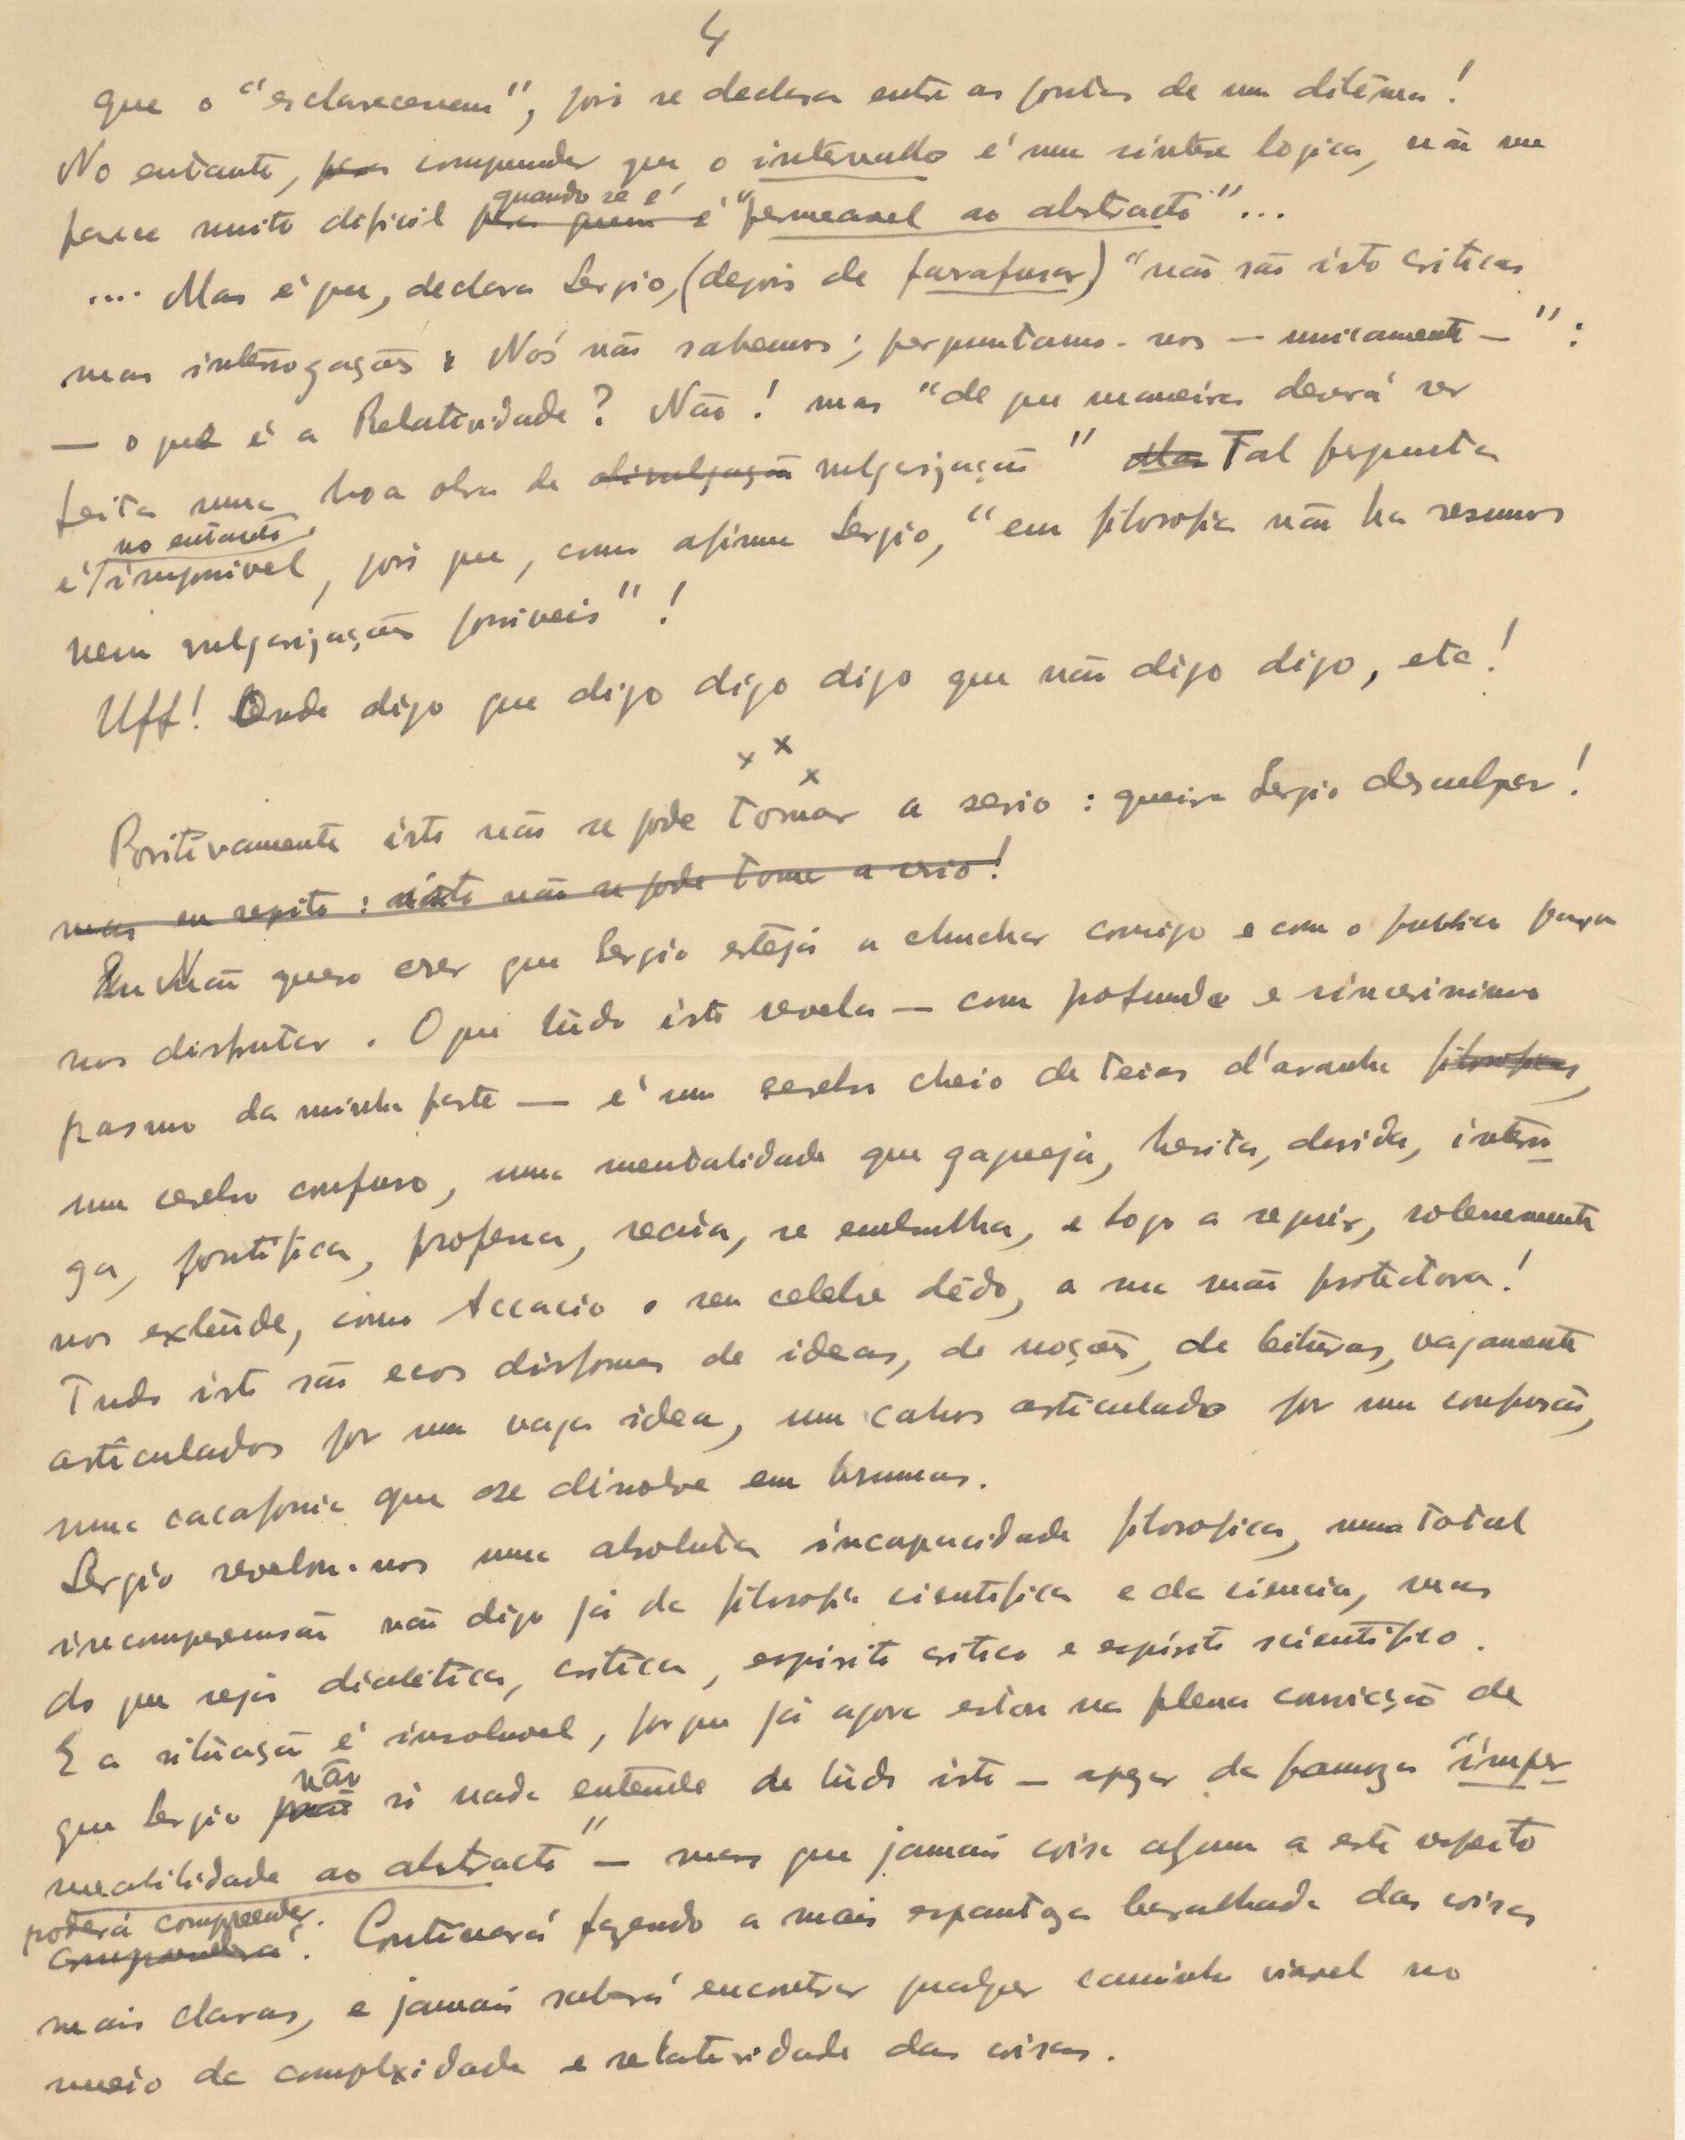 4
que o "esclarecessem", pois se declara entre as pontas de um dilêma!
No entanto, para compreender que o intervallo é uma síntese logica, não me
quando se é
parece muito dificil para quem é "permeavel ao abstracto"...
.... Mas é que, declara Sergio, (depois de parafusar) "não são isto criticas
mas interrogações: Nós não sabemos; perguntamo-nos — unicamente —":
— o que é a Relatividade? Não! mas "de que maneira deverá ser
feita uma boa obra de divulgação vulgarização" Mas Tal pergunta
no entanto
é impossivel, pois que, como afirma Sergio, "em filosofia não ha resumos
nem vulgarizações possiveis"!
Uff! Onde digo que digo digo digo que não digo digo, etc!
x x x
Positivamente isto não se pode tomar a serio: queira Sergio desculpar!
mas eu repito: isto não se pode tomar a serio!
Eu Não quero crer que Sergio esteja a chuchar comigo e com o publico para
nos disfrutar. O que tudo isto revela — com profundo e sincerissimo
pasmo da minha parte — é um cerebro cheio de teias d'aranha filosoficas,
um cerebro confuso, uma mentalidade que gagueja, hesita, duvida, interro-
ga, pontifica, professa, recúa, se embrulha, e logo a seguir, solenemente
nos extende, como Accacio o seu celebre dêdo, a sua mão protectora!
Tudo isto são ecos disformes de ideas, de noções, de leituras, vagamente
articulados por uma vaga idea, um cahos articulado por uma confusão,
uma cacafonia que se dissolve em brumas.
Sergio revelou-nos uma absoluta incapacidade filosofica, uma total
incompreensão não digo já da filosofia cientifica e da ciencia, mas
do que seja dialetica, critica, espirito critico e espirito scientifico.
E a situação é insoluvel, porque já agora estou na plena convicção de
não
que Sergio só nada entende de tudo isto — apezar da famoza "imper-
meabilidade ao abstracto" — mas que jamais coisa alguma a este respeito
poderá compreender.
compreenderá. Continuará fazendo a mais espantoza baralhada das coisas
mais claras, e jamais saberá encontrar qualquer caminho viavel no
meio da complexidade e relatividade das coisas.